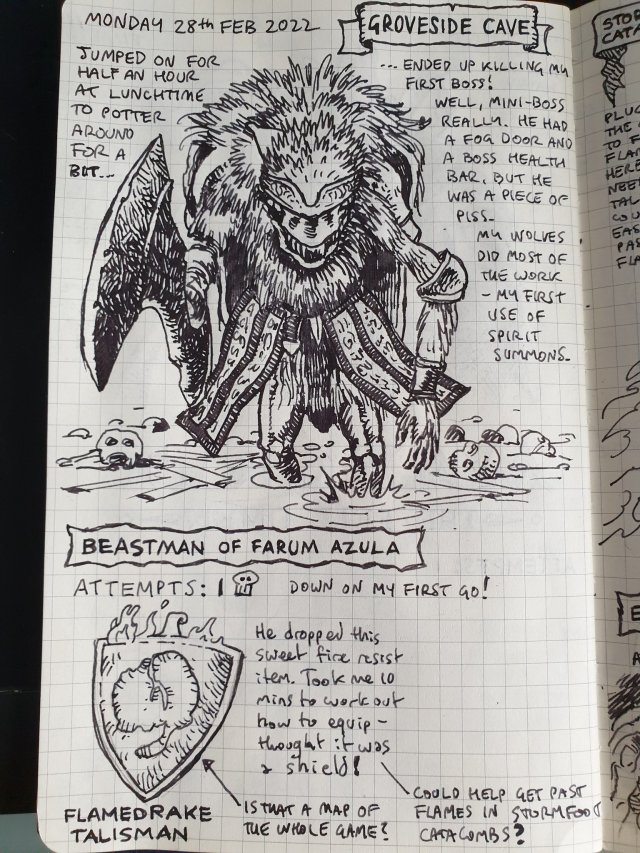 MONDAY 28TH FEB 2022
GROVESIDE CAVE
JUMPED ON FOR
HALF AN HOUR
AT LUNCHTIME
TO POTTER
AROUND
FOR A
BIT...
... ENDED UP KILLING MY
FIRST BOSS!
WELL, MINI-BOSS
REALLY. HE HAD
A FOG DOOR AND
A BOSS HEALTH
BAR, BUT HE
WAS A PIECE OF
PISS.
MY WOLVES
DID MOST OF
THE WORK
- MY FIRST
USE OF
SPIRIT
SUMMONS.
BEASTMAN OF FARUM AZULA
ATTEMPTS: 1
DOWN ON MY FIRST GO!
He dropped this
sweet fire resist
item. Took me 10
mins to work out
how to equip -
thought it was
a shield!
FLAMEDRAKE
TALISMAN
IS THAT A MAP OF
THE WHOLE GAME?
COULD HELP GET PAST
FLAMES IN STORMFOOT
CATACOMBS?
STOR
CATA
PLUC
THE
TO F
FLA
HERE
NEE
TAL
COU
EAS
PAS
FLA